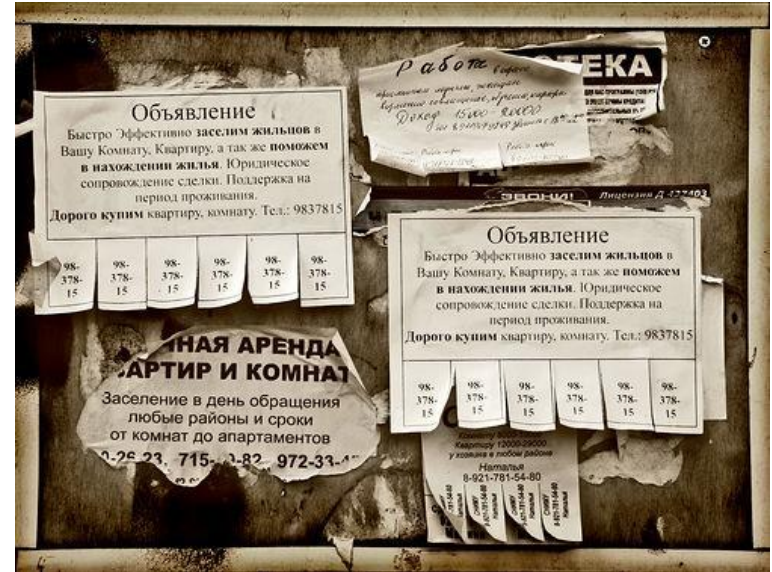 Объявление
Быстро Эффективно заселим жильцов в
Вашу Комнату, Квартиру, а так же поможем
в нахождении жилья. Юридическое
сопровождение сделки. Поддержка на
период проживания.
Дорого купим квартиру, комнату. Тел.: 9837815
98-
378-
15
98-
378-
15
98-
378-
15
98-
378-
15
98-
378-
15
98-
378-
15
Работа в офисе
Доход 15000-20000
ТЕКА
ЗВОНИ!
Лицензия Д
Объявление
Быстро Эффективно заселим жильцов в
Вашу Комнату, Квартиру, а так же поможем
в нахождении жилья. Юридическое
сопровождение сделки. Поддержка на
период проживания.
Дорого купим квартиру, комнату. Тел.: 9837815
98-
378-
15
98-
378-
15
98-
378-
15
98-
378-
15
98-
378-
15
98-
378-
15
ННАЯ АРЕНДА
АРТИР И КОМНАТ
Заселение в день обращения
любые районы и сроки
от комнат до апартаментов
0-26 23, 715- 0-82 972-33-
Комнату
Квартиру 12000-29000
у хозяина в любом районе
Наталья
8-921-781-54-80
СНИМУ
8-921-781-54-80
Наталья
СНИМУ
8-921-781-54-80
Наталья
СНИМУ
8-921-781-54-80
Наталья
СНИМУ
8-921-781-54-80
Наталья